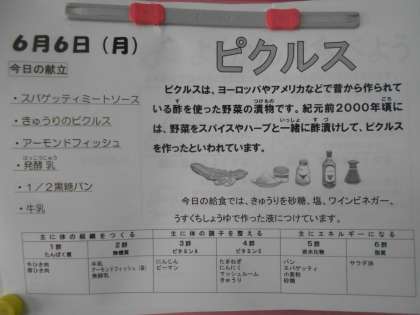 6月6日（月）
今日の献立
・スパゲッティミートソース
・きゅうりのピクルス
・アーモンドフィッシュ
はっこうにゅう
・発酵乳
・1／2黒糖パン
・牛乳
ピクルス
ピクルスは、ヨーロッパやアメリカなどで昔から作られて
す　つけもの　ごろ
いる酢を使った野菜の漬物です。紀元前2000年頃に
いっしょ　すづ
は、野菜をスパイスやハーブと一緒に酢漬けして、ピクルス
を作ったといわれています。
今日の給食では、きゅうりを砂糖、塩、ワインビネガー、
うすくちしょうゆで作った液につけています。
主に体の組織をつくる　主に体の調子を整える　主にエネルギーになる
1群　2群　3群　4群　5群　6群
たんぱく質　無機質　ビタミンA　ビタミンC　炭水化物　脂質
牛ひき肉　牛乳　にんじん　たまねぎ　パン　サラダ油
豚ひき肉　アーモンドフィッシュ　ピーマン　にんにく　スパゲティ
発酵乳　マッシュルーム　小麦粉
きゅうり　砂糖